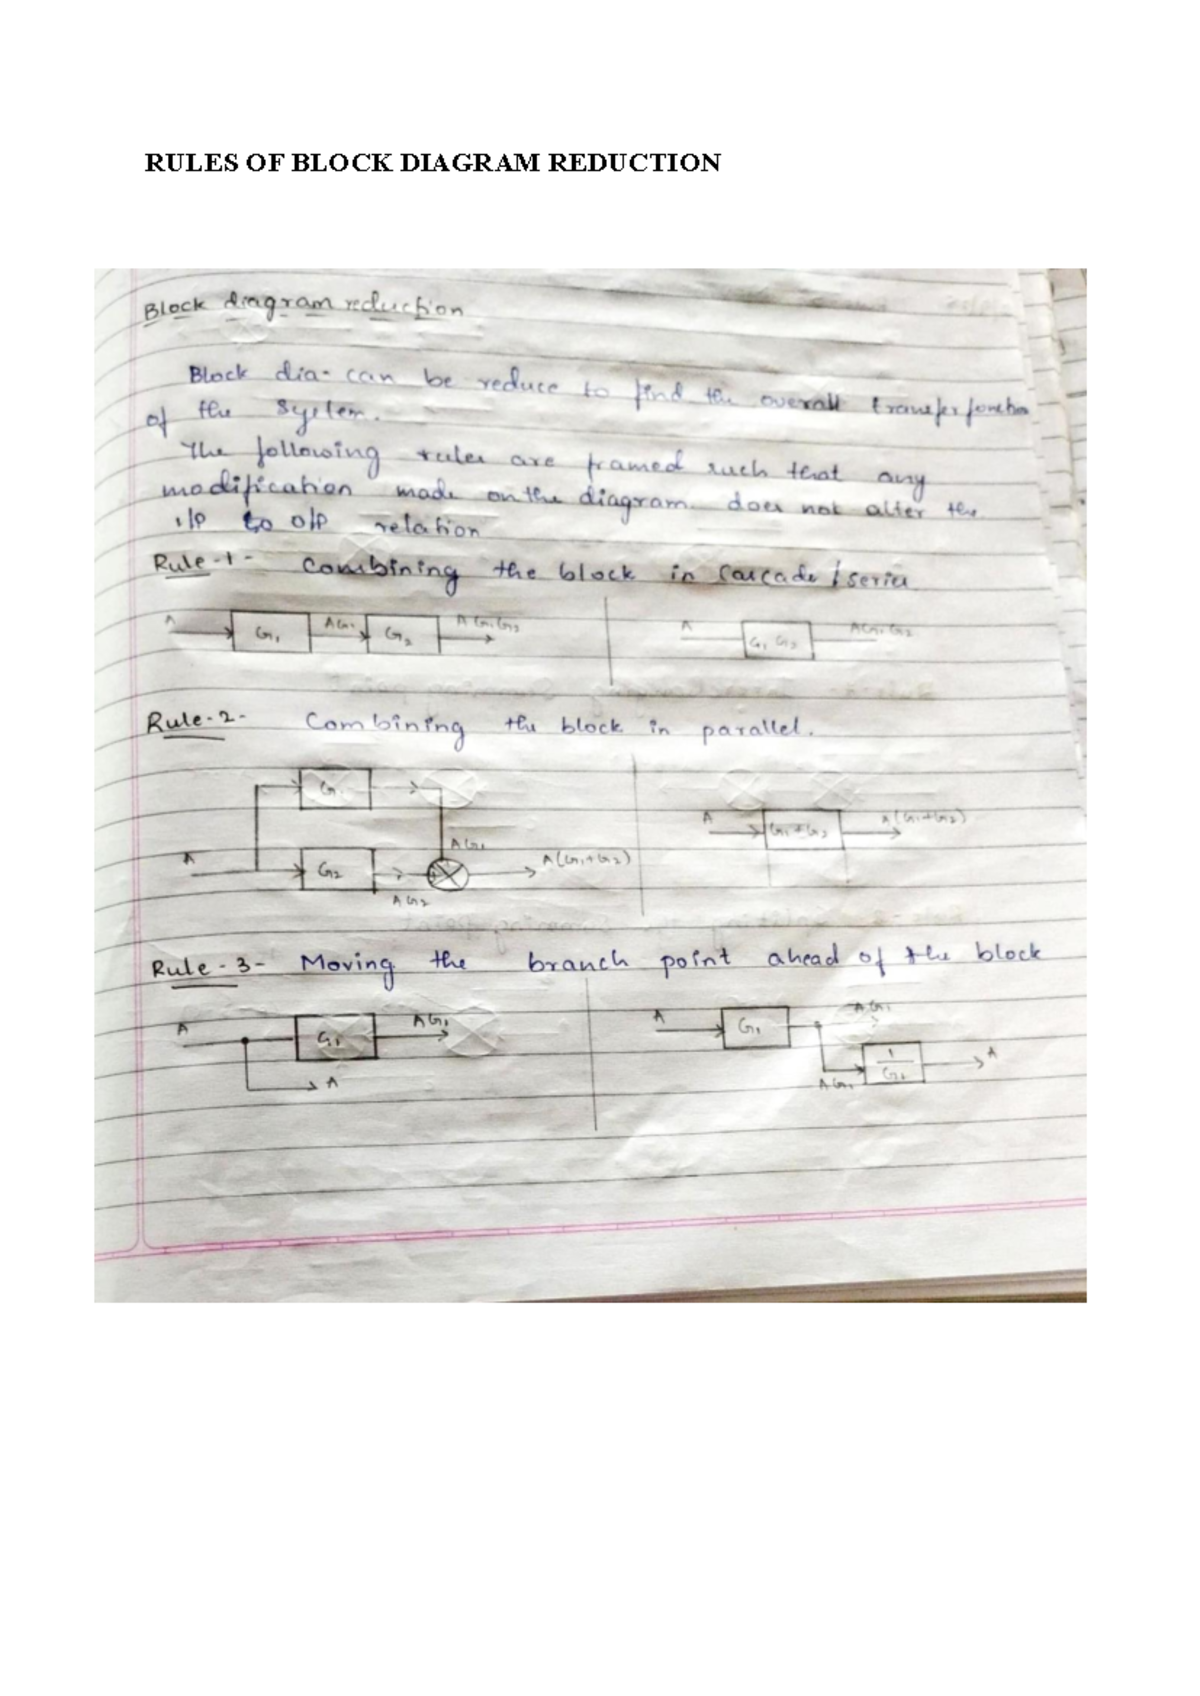 RULES OF BLOCK DIAGRAM REDUCTION
Block diagram reduction
Block dia- can be reduce to find the overall transfer function
of the system.
The following rules are framed such that any
modification made on the diagram does not alter the
i/p to o/p relation
Rule-1- Combining the block in Cascade / series
A G1 AG1 G2 AG1G2 A G1 G2 AG1G2
Rule-2- Combining the block in parallel.
G1
AG1
A G2 A(G1+G2) A G1+G2 A(G1+G2)
AG2
Rule-3- Moving the branch point ahead of the block
A G1 AG1 A G1 AG1
A AG1 1/G1 A